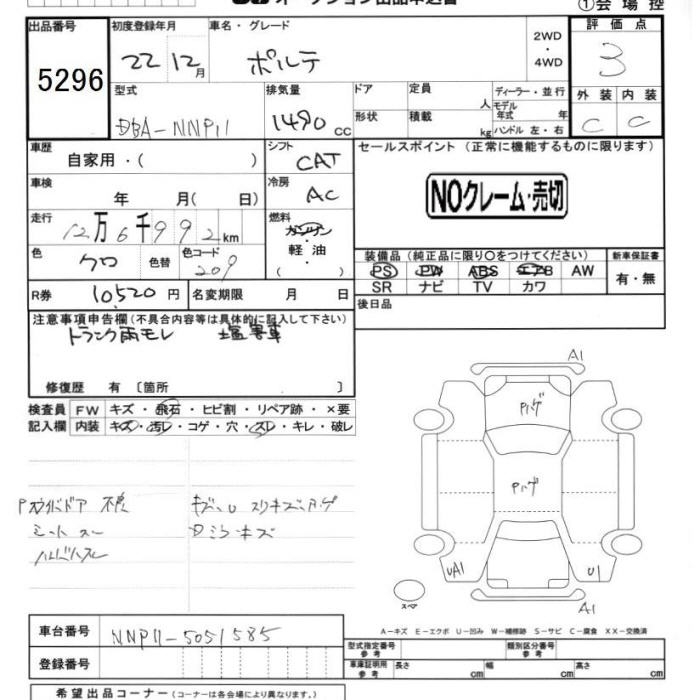 オークション出品申込書
①会場控
出品番号
初度登録年月
車名・グレード
2WD
・
4WD
評価点
5296
22 12月
ポルテ
3
型式
排気量
ドア
定員
人
ディーラー・並行
モデル年式
年
外装
内装
DBA-NNP11
1490 cc
形状
積載
kg
ハンドル 左・右
C
C
車歴
自家用・( )
シフト
CAT
セールスポイント (正常に機能するものに限ります)
車検
年 月( 日)
冷房
AC
NOクレーム・売切
走行
12万6千992km
燃料
ガソリン
軽・油
( )
色
クロ
色替
色コード
209
装備品 (純正品に限り○をつけてください)
新車保証書
PS PW ABS エアB AW
SR ナビ TV カワ
有・無
R券
10,520円
名変期限
月 日
後日品
注意事項申告欄(不具合内容等は具体的に記入して下さい)
トランク雨モレ 塩害車
修復歴 有 〔箇所 〕
検査員
記入欄
FW
キズ・飛石・ヒビ割・リペア跡・×要
内装
キズ・汚レ・コゲ・穴・スレ・キレ・破レ
Pスライドドア 不良
キズ、U スリキズ、ハゲ
シートスレ
Dミラーキズ
A1
Pハゲ
Pハゲ
UA1
U1
スペア
A1
A-キズ E-エクボ U-凹み W-補修跡 S-サビ C-腐食 XX-交換済
車台番号
NNP11-5051585
登録番号
型式指定番号
参考
類別区分番号
参考
車庫証明用
参考
長さ
cm
幅
cm
高さ
cm
希望出品コーナー(コーナーは各会場により異なります。)